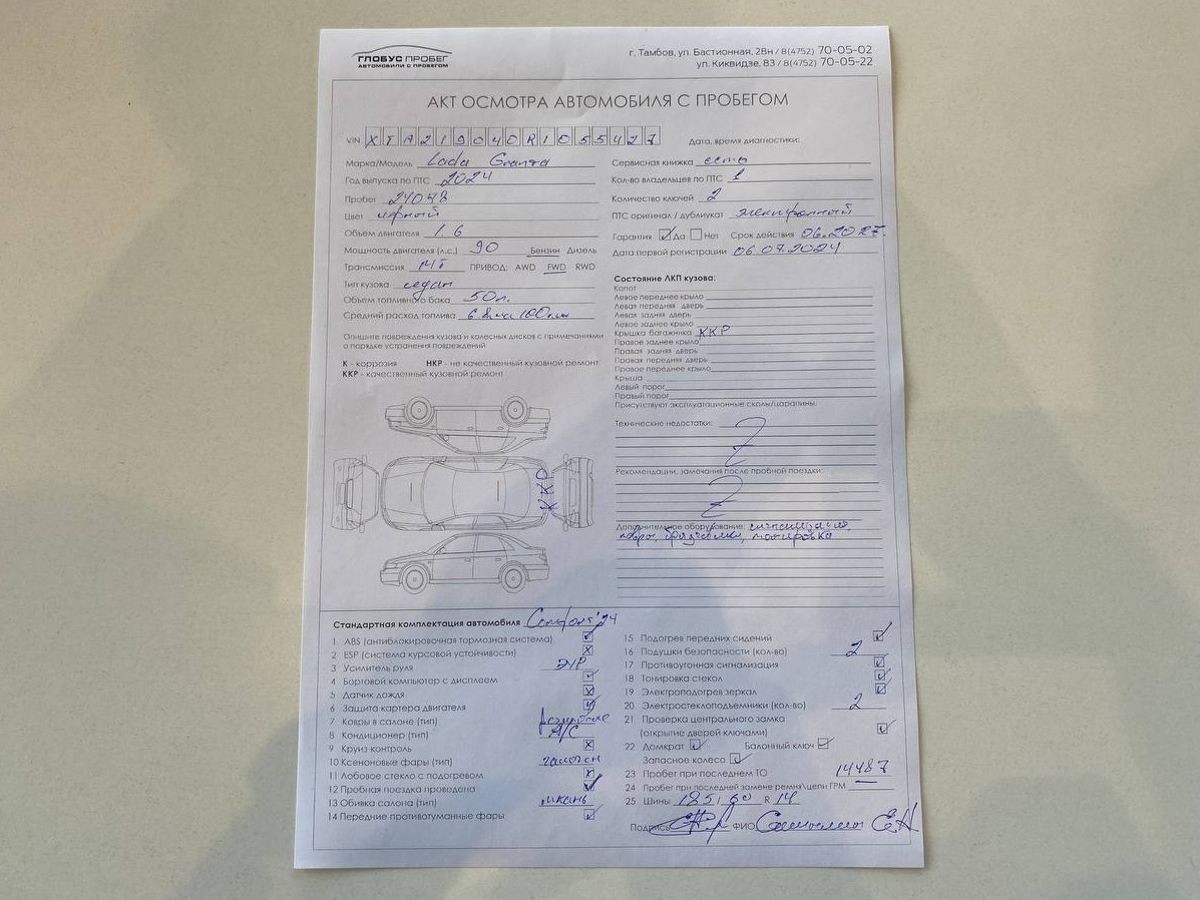 ГЛОБУС ПРОБЕГ
АВТОМОБИЛИ С ПРОБЕГОМ
г. Тамбов, ул. Бастионная, 28н / 8(4752) 70-05-02
ул. Киквидзе, 83 / 8(4752) 70-05-22
АКТ ОСМОТРА АВТОМОБИЛЯ С ПРОБЕГОМ
VIN XTA219040R1055427
Дата, время диагностики:
Марка/Модель Lada Granta
Год выпуска по ПТС 2024
Пробег 24048
Цвет чёрный
Объем двигателя 1.6
Мощность двигателя (л.с.) 90 Бензин Дизель
Трансмиссия МТ ПРИВОД: AWD FWD RWD
Тип кузова седан
Объем топливного бака 50л.
Средний расход топлива 6.8 на 100км
Сервисная книжка есть
Кол-во владельцев по ПТС 1
Количество ключей 2
ПТС оригинал / дубликат электронный
Гарантия Да Нет Срок действия 06.2027.
Дата первой регистрации 06.07.2024
Опишите повреждения кузова и колесных дисков с примечаниями
о порядке устранения повреждений
К - коррозия НКР - не качественный кузовной ремонт
ККР - качественный кузовной ремонт
ККР
Состояние ЛКП кузова:
Капот
Левое переднее крыло
Левая передняя дверь
Левая задняя дверь
Левое заднее крыло
Крышка багажника ККР
Правое заднее крыло
Правая задняя дверь
Правая передняя дверь
Правое переднее крыло
Крыша
Левый порог
Правый порог
Присутствуют эксплуатационные сколы/царапины.
Технические недостатки:
Рекомендации, замечания после пробной поездки:
Дополнительное оборудование: сигнализация,
ковры, брызговики, тонировка
Стандартная комплектация автомобиля Comfort'24
1 ABS (антиблокировочная тормозная система)
2 ESP (система курсовой устойчивости)
3 Усилитель руля ЭУР
4 Бортовой компьютер с дисплеем
5 Датчик дождя
6 Защита картера двигателя
7 Ковры в салоне (тип)
8 Кондиционер (тип) A/C
9 Круиз контроль
10 Ксеноновые фары (тип) галоген
11 Лобовое стекло с подогревом
12 Пробная поездка проводена
13 Обивка салона (тип) ткань
14 Передние противотуманные фары
15 Подогрев передних сидений
16 Подушки безопасности (кол-во) 2
17 Противоугонная сигнализация
18 Тонировка стекол
19 Электроподогрев зеркал
20 Электростеклоподъемники (кол-во) 2
21 Проверка центрального замка
(открытие дверей ключами)
22 Домкрат Балонный ключ
Запасное колесо
23 Пробег при последнем ТО 14487
24 Пробег при последней замене ремня/цепи ГРМ —
25 Шины 185/60 R 14
Подпись ФИО